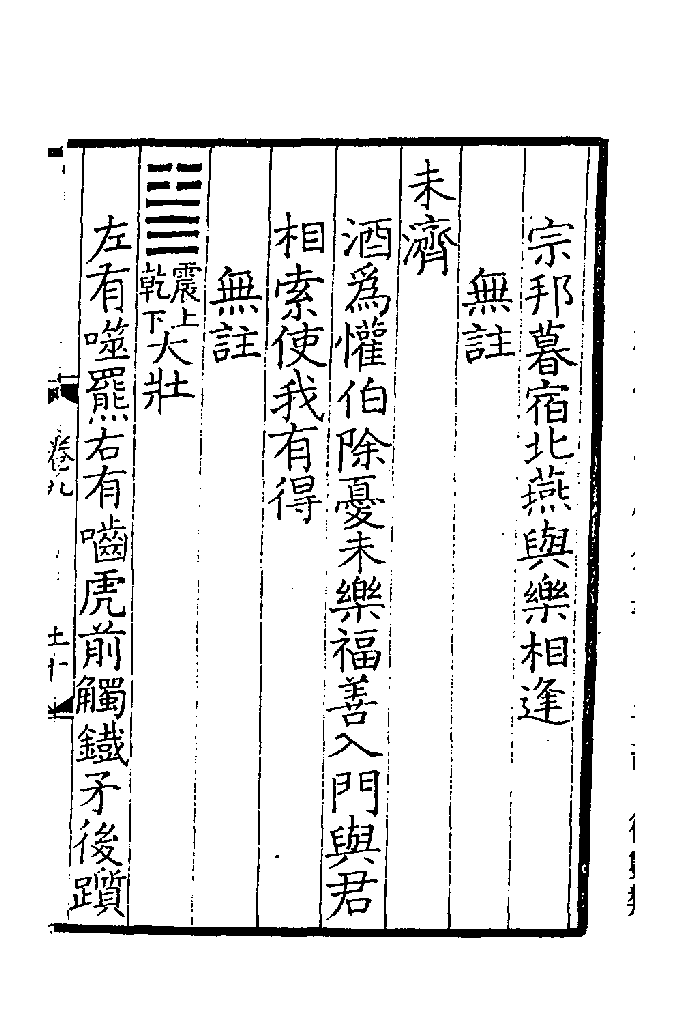 宗邦暮宿北燕與樂相逢
無註
未濟
酒爲懽伯除憂未樂福善入門與君
相索使我有得
無註
䷡震上乾下大壯
左有噬羆右有嚙虎前觸鐵矛後躓
卷九